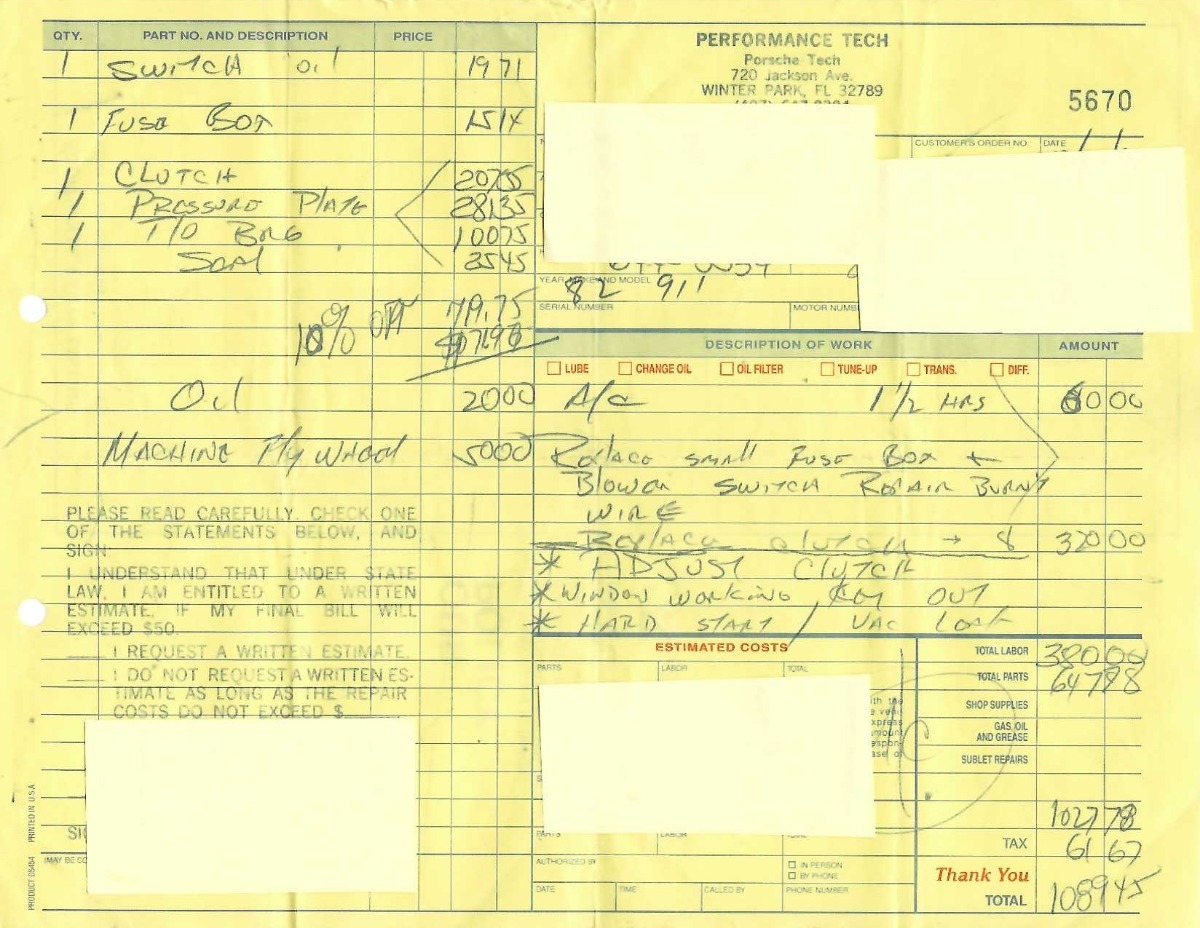 QTY. PART NO. AND DESCRIPTION PRICE
1 SWITCH Oil 19 71
1 FUSE BOX 15 14
1 CLUTCH 207 55
1 PRESSURE PLATE 281 35
1 T/O BRG 100 75
Seal 35 45
10% OFF 719.75
Oil 20 00
MACHINE FlyWheel 50 00
PLEASE READ CAREFULLY. CHECK ONE
OF THE STATEMENTS BELOW, AND
SIGN:
I UNDERSTAND THAT UNDER STATE
LAW, I AM ENTITLED TO A WRITTEN
ESTIMATE. IF MY FINAL BILL WILL
EXCEED $50.
I REQUEST A WRITTEN ESTIMATE.
I DO NOT REQUEST A WRITTEN ES-
TIMATE AS LONG AS THE REPAIR
COSTS DO NOT EXCEED $
PRODUCT DS454 PRINTED IN U.S.A.
PERFORMANCE TECH
Porsche Tech
720 Jackson Ave.
WINTER PARK, FL 32789
5670
CUSTOMER'S ORDER NO. DATE
YEAR, MAKE AND MODEL
82 911
SERIAL NUMBER
DESCRIPTION OF WORK AMOUNT
LUBE CHANGE OIL OIL FILTER TUNE-UP TRANS. DIFF.
A/C 1 1/2 HRS 60 00
Replace small FUSE BOX +
Blower SWITCH REPAIR BURNT
WIRE
Replace clutch → 8 320 00
* ADJUST CLUTCH
* WINDOW WORKING Key OUT
* HARD START / VAC Leak
ESTIMATED COSTS
PARTS LABOR TOTAL
TOTAL LABOR 380 00
TOTAL PARTS 647 78
SHOP SUPPLIES
GAS, OIL
AND GREASE
SUBLET REPAIRS
1027 78
TAX 61 67
Thank You
TOTAL 1089 45
AUTHORIZED BY
IN PERSON
BY PHONE
DATE TIME CALLED BY PHONE NUMBER